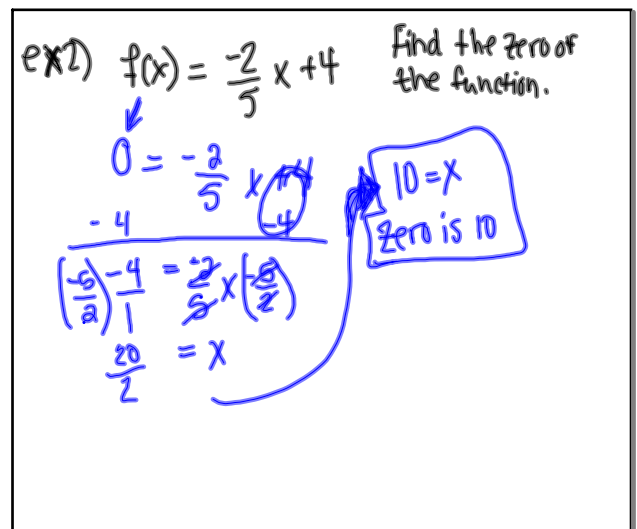 ex2) f(x) = -2/5 x + 4
Find the zero of
the function.
0 = -2/5 x + 4
- 4 -4
(-5/2) -4/1 = -2/5 x (-5/2)
20/2 = x
10 = x
zero is 10